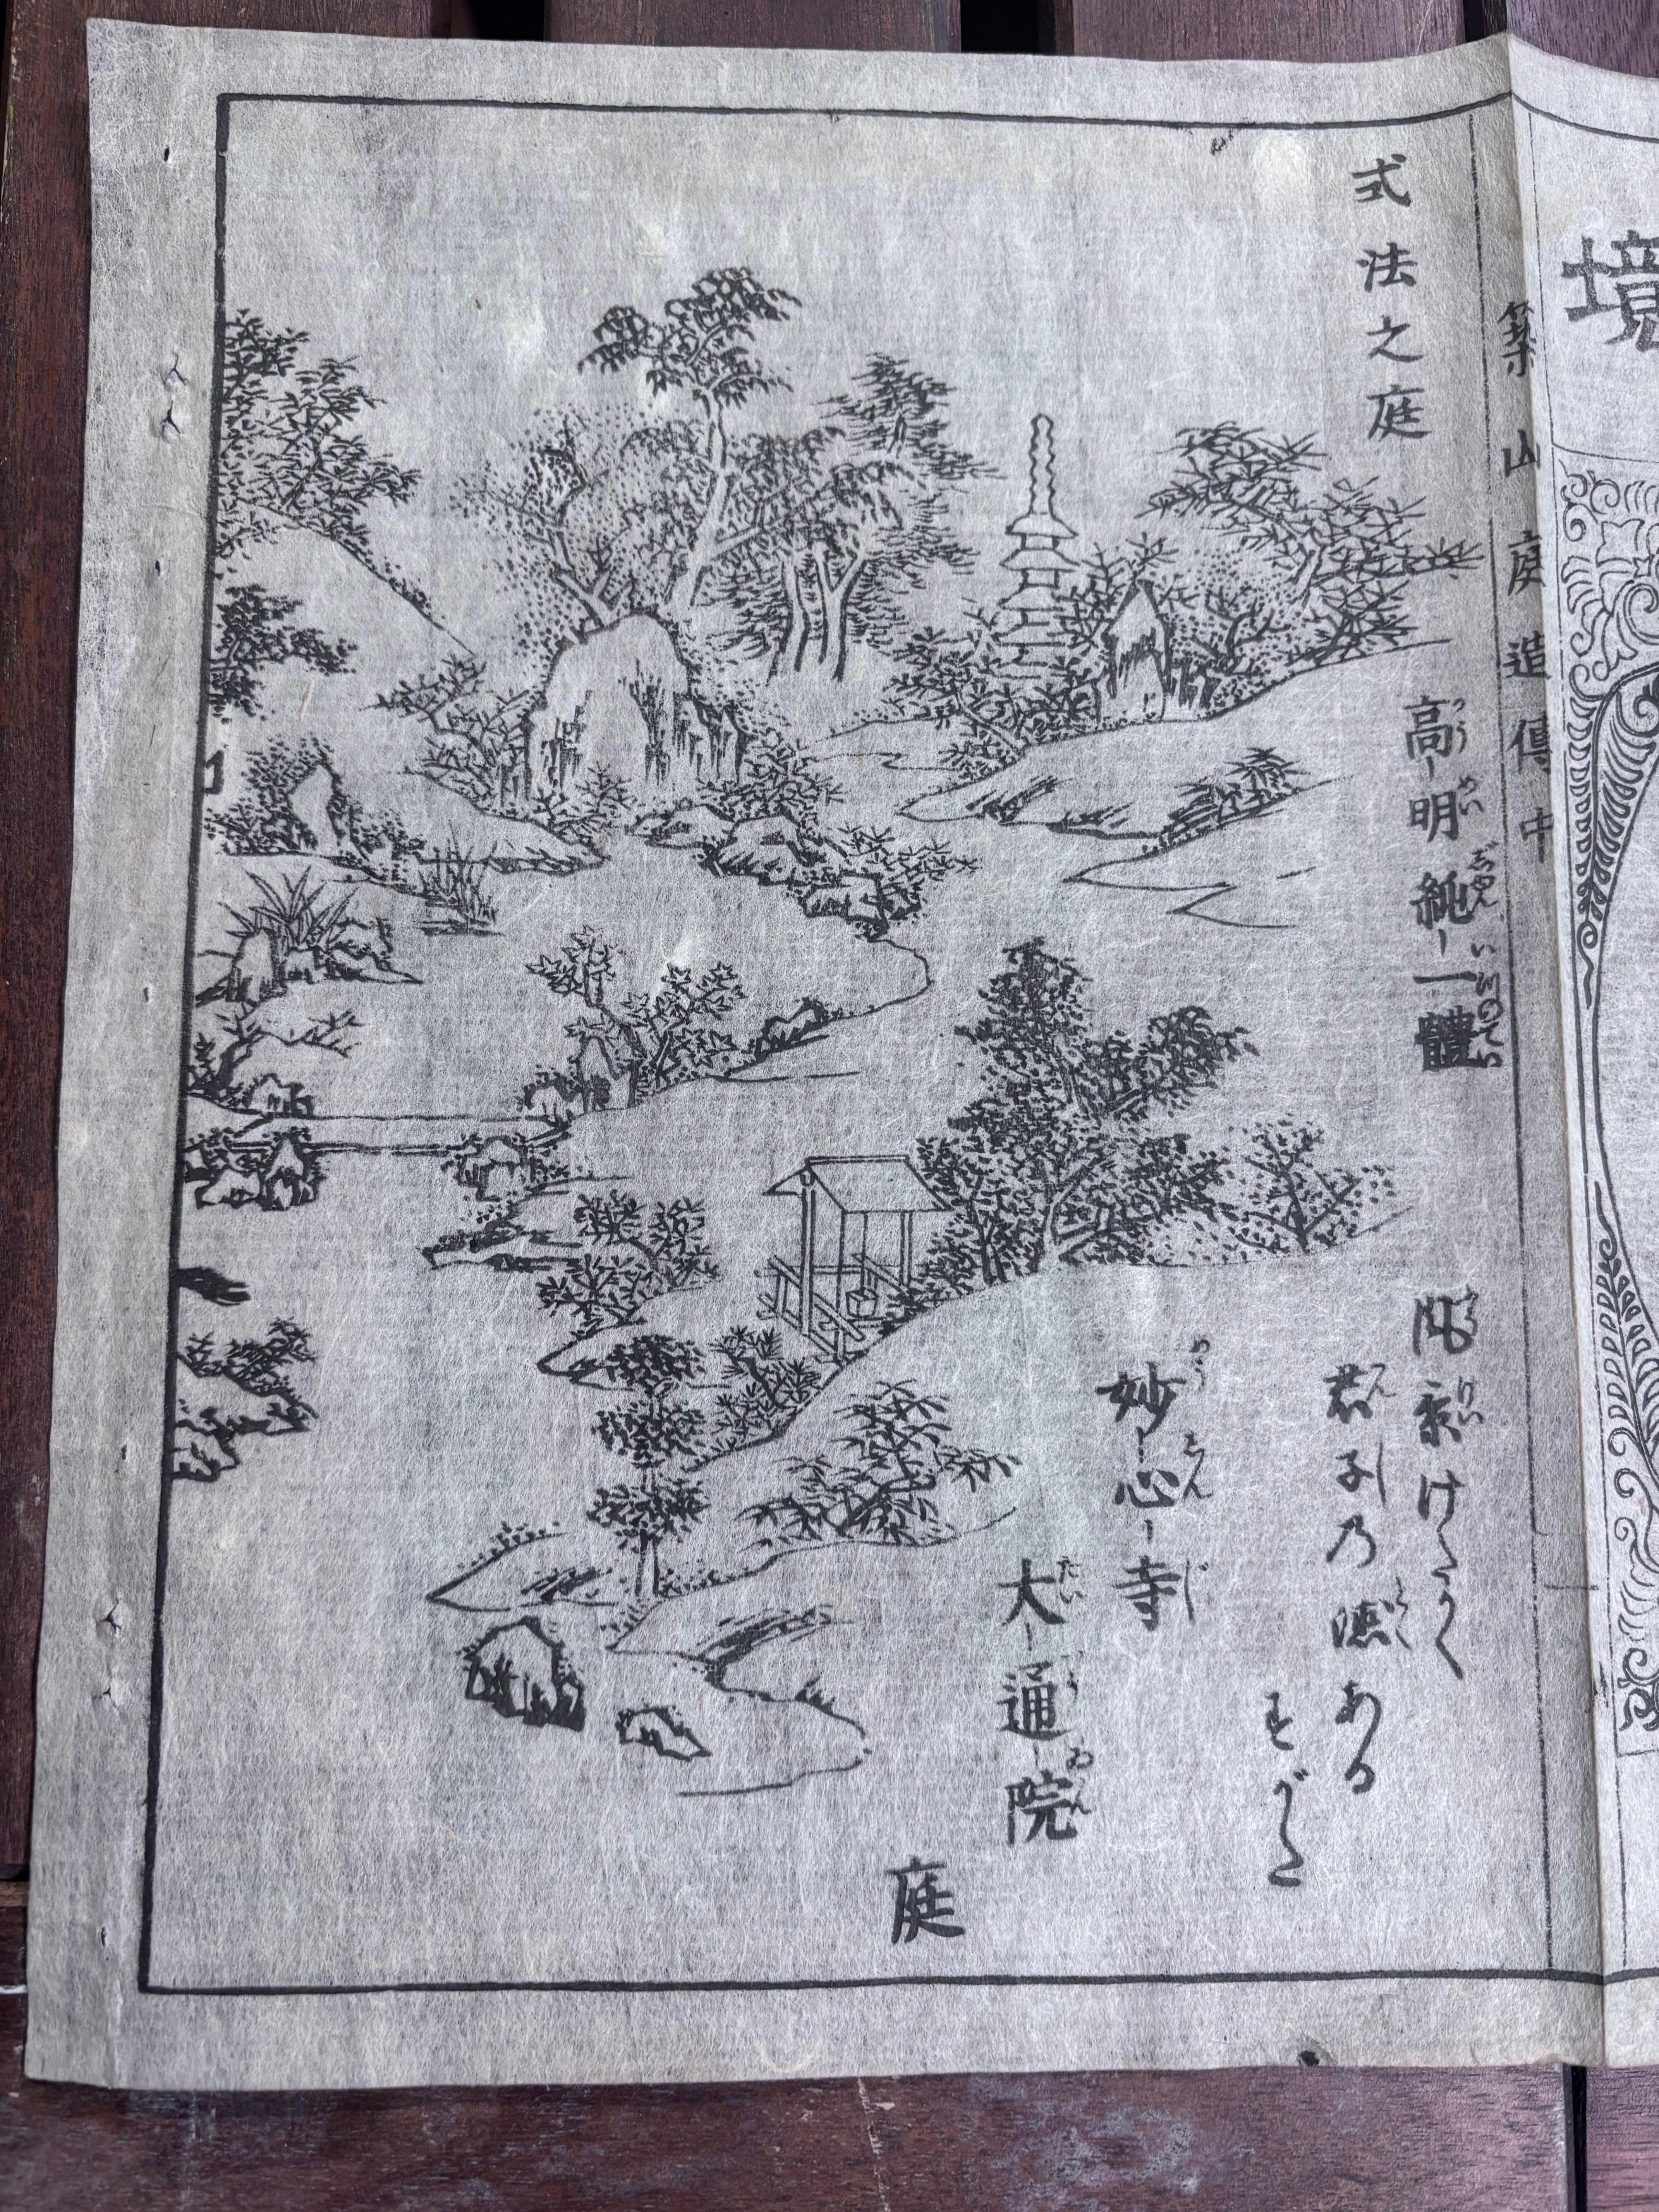 境
築山庭造傳中
式法之庭
高明純一體
風景けたかく
君子乃徳ある
すがた
妙心寺
大通院
庭